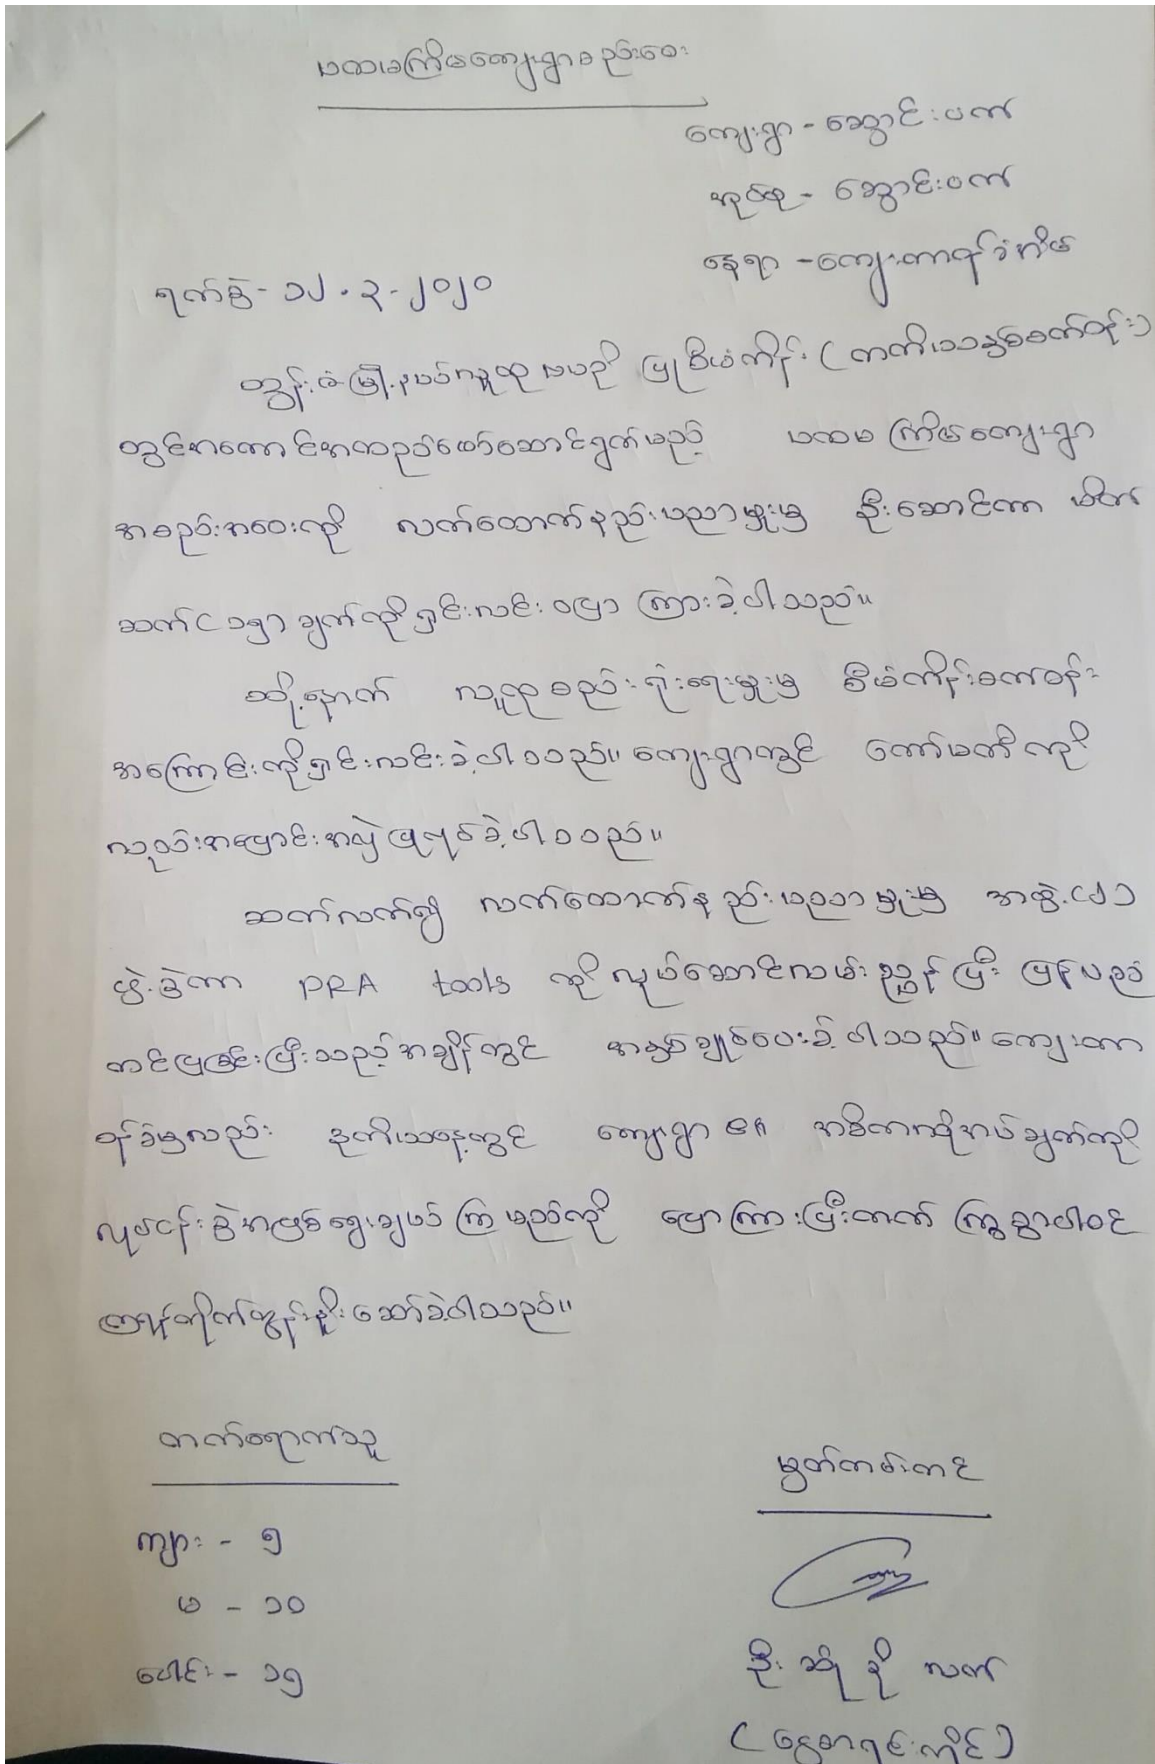 ပထမအကြိမ်ကျေးရွာစည်းဝေး
ကျေးရွာ - ဆွောင်းပက်
အုပ်စု - ဆွောင်းပက်
နေရာ - ကျေးတာဝန်ခံအိမ်
ရက်စွဲ - ၁၂.၃.၂၀၂၀
တွန်းဇံမြို့နယ် လူထုဗဟိုပြုစီမံကိန်း (ဒုတိယနှစ်စက်ဝန်း)
တွင်အကောင်အထည်ဖော်ဆောင်ရွက်မည့် ပထမအကြိမ်ကျေးရွာ
အစည်းအဝေးကို လက်ထောက်နည်းပညာမှူးမှ ဦးဆောင်ကာ မိတ်
ဆက် ( ၁၅) ချက်ကို ရှင်းလင်းပြောကြားခဲ့ပါသည်။
ထို့နောက် လူထုစည်းရုံးရေးမှူးမှ စီမံကိန်းစက်ဝန်း
အကြောင်းကိုရှင်းလင်းခဲ့ပါသည်။ ကျေးရွာတွင် ကော်မတီကို
လည်းအပြောင်းအလဲပြုလုပ်ခဲ့ပါသည်။
ဆက်လက်၍ လက်ထောက်နည်းပညာမှူးမှ အဖွဲ့(၂)
ဖွဲ့ခွဲကာ PRA tools ကိုလုပ်ဆောင်လမ်းညွှန်ပြီး ပြန်လည်
တင်ပြခြင်းပြီးသည့်အချိန်တွင် အနှစ်ချုပ်ပေးခဲ့ပါသည်။ ကျေးတာ
ဝန်ခံမှလည်း ဒုတိယနေ့တွင် ကျေးရွာ၏ အဓိကလိုအပ်ချက်ကို
လုပ်ငန်းခွဲအဖြစ်ရွေးချယ်ကြမည်ကို ပြောကြားပြီးတက်ကြွစွာပါဝင်
ကြရန်တိုက်တွန်းနှိုးဆော်ခဲ့ပါသည်။
တက်ရောက်သူ
မှတ်တမ်းတင်
ကျား - ၅
မ - ၁၀
ပေါင်း - ၁၅
ဦး ဆုံ နို လက်
(ငွေစာရင်းကိုင်)